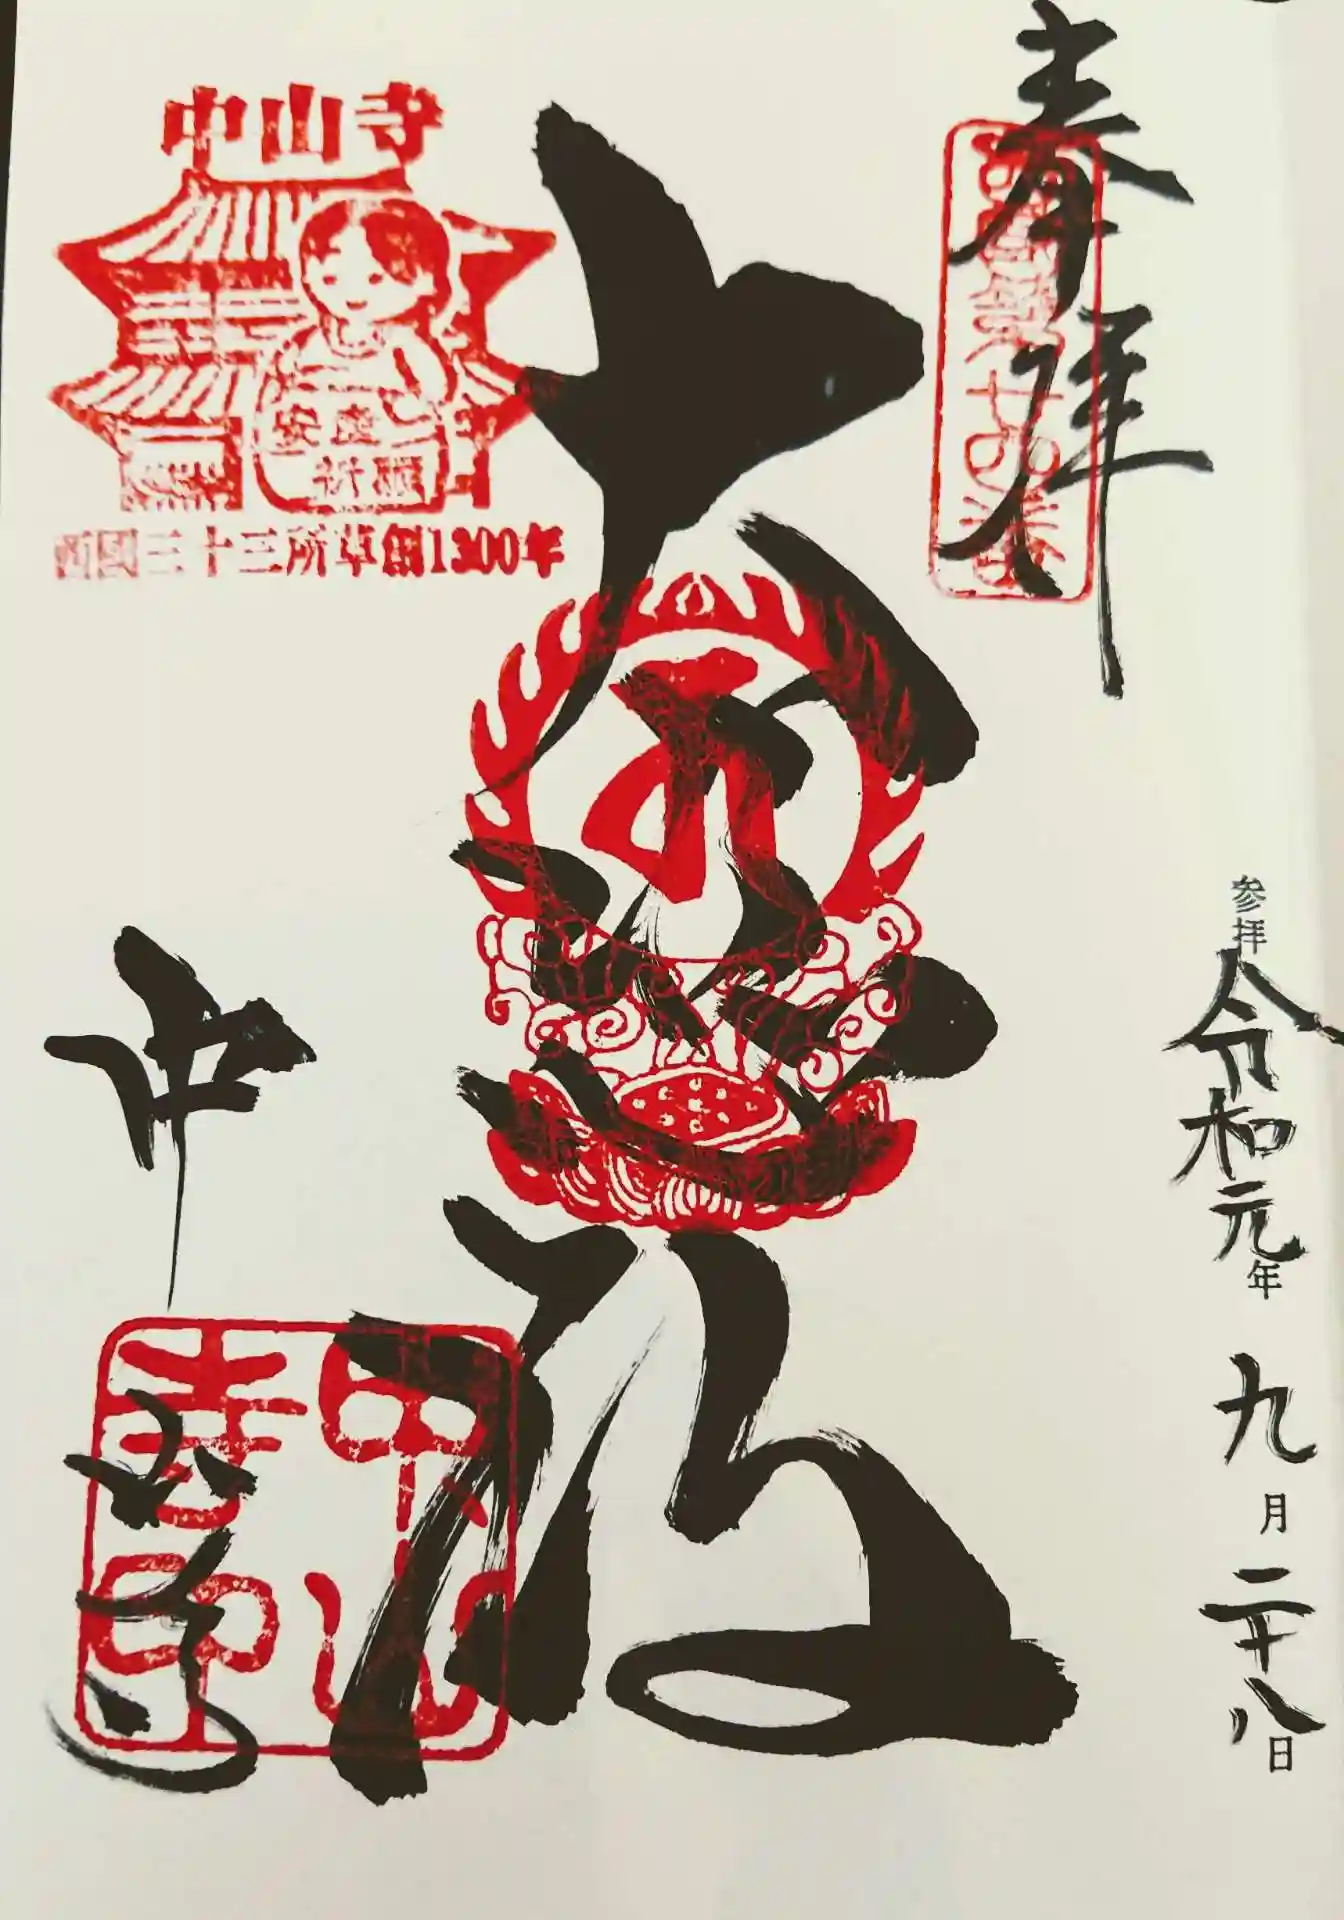 奉拝
西國第廿四番
参拝
令和元年
九月二十八日
大悲殿
中山寺
西國三十三所草創1300年
安産
祈願
中山寺
中山寺印